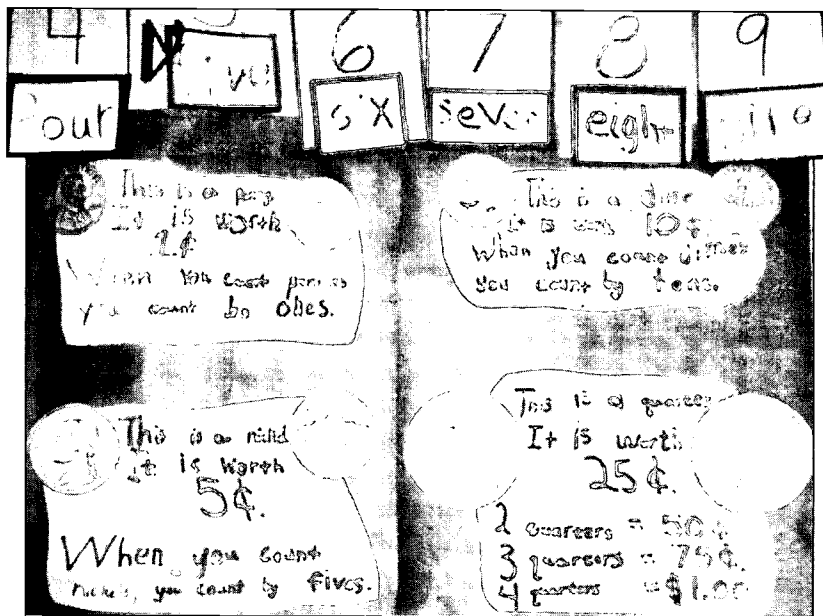 4 5 6 7 8 9
six seven eight
This is a
It is worth
1¢
When you count pennies
you count by ones.
This is a dime
It is worth 10¢
When you count dimes
you count by tens.
This is a
It is worth
5¢.
When you count
you count by fives.
This is a quarter
It is worth
25¢.
2 quarters = 50¢
3 quarters = 75¢.
4 quarters = $1.00